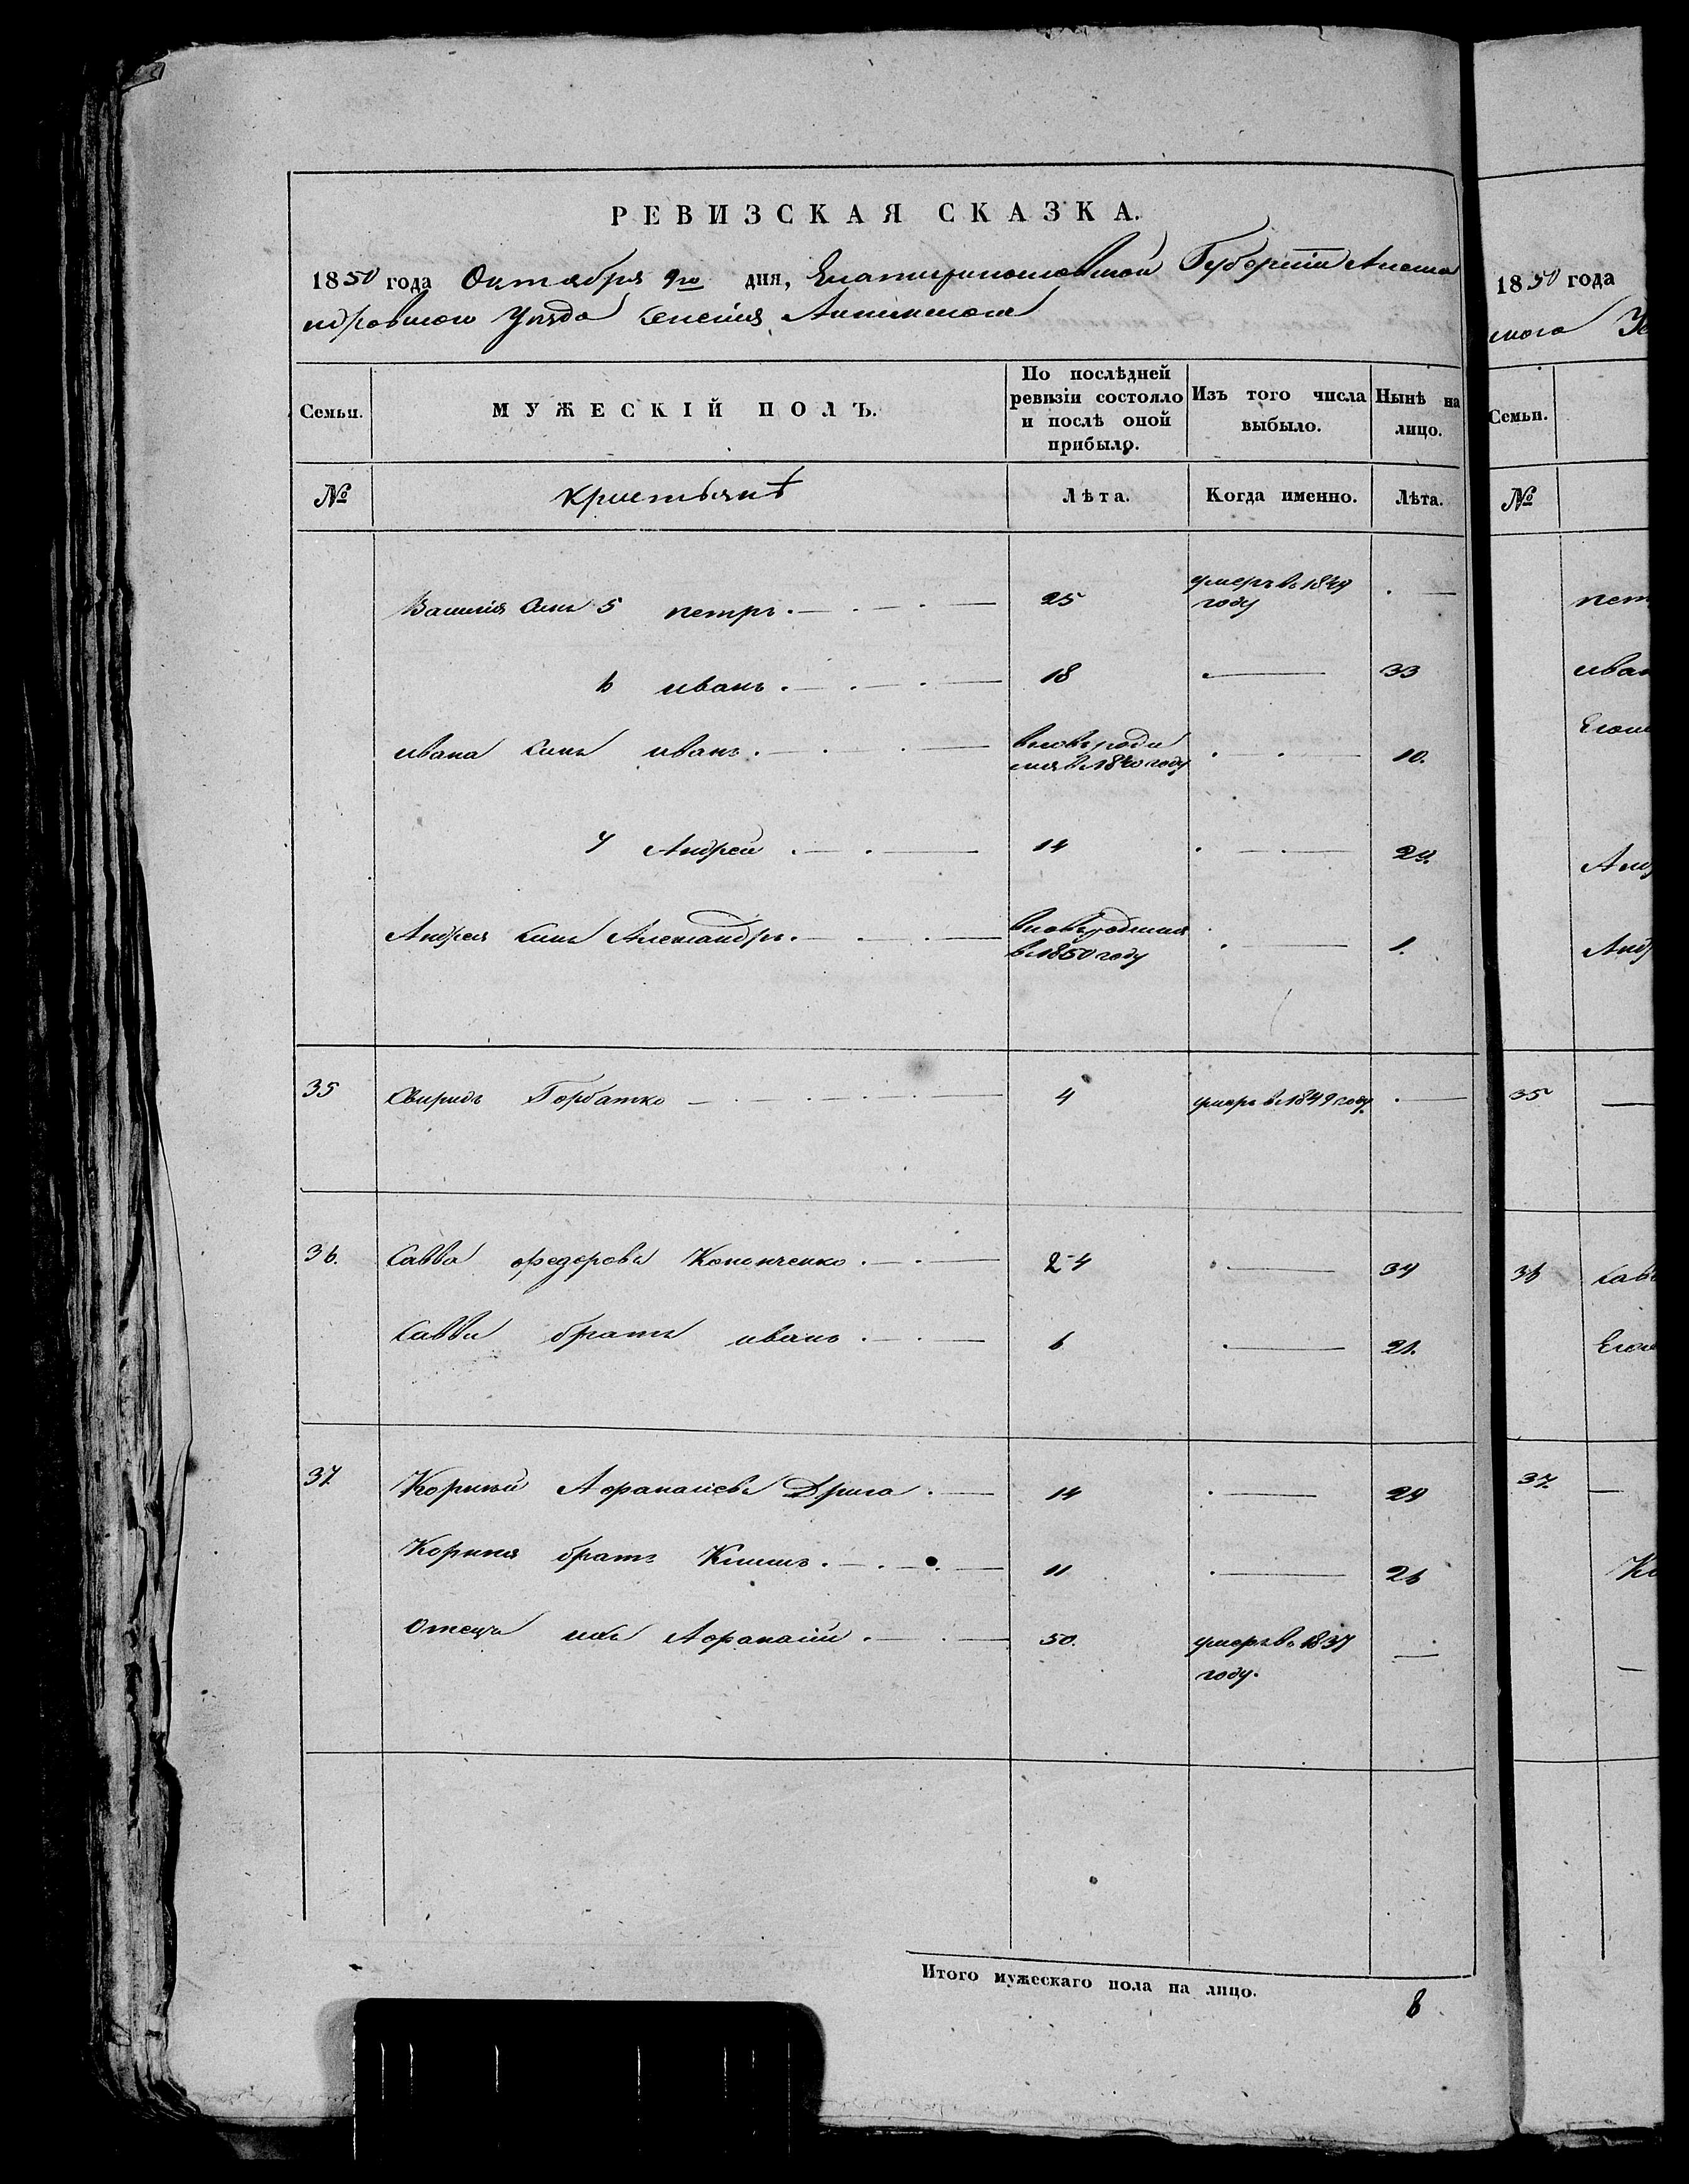 РЕВИЗСКАЯ СКАЗКА.
1850 года Октября 9го дня, Екатеринославской Губерніи Алекса
ндровского Уезда
Семьи.
МУЖЕСКІЙ ПОЛЪ.
По послѣдней ревизіи состояло и послѣ оной прибыло.
Изъ того числа выбыло.
Нынѣ на лицо.
№
Крестьянѣ
Лѣта.
Когда именно.
Лѣта.
Василія сынъ 5 петръ. 25 умеръ въ 1849 году
6 иванъ. 18 33
ивана сынъ иванъ. вновь роди лся въ 1840 году 10.
7 Андрей 14 29.
Андрея сынъ Александръ. вновь родился въ 1850 году 1.
35 Свиридъ Горбатко 4 умеръ въ 1849 году
36. Савва Федоровъ Кононченко. 24 39
Саввы братъ иванъ. 6 21.
37 Корній Афанасіевъ Дрига. 14 29
Корнія братъ Климъ. 11 26
Отецъ ихъ Афанасій. 50. умеръ въ 1837 году.
Итого мужескаго пола на лицо. 8
1850 года
мого
Семьи.
№
пет
иван
Андр
35
36 Савв
37.